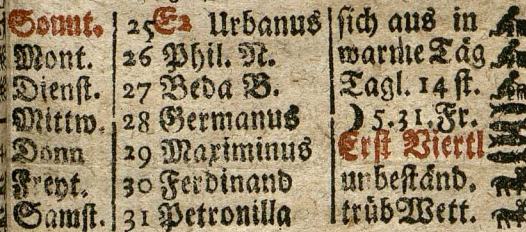 Sonnt. 25 Ex Urbanus sich aus in
Mont. 26 Phil. N. warme Täg
Dienst. 27 Beda B. Tagl. 14 st.
Mittw. 28 Germanus ☽ 5. 31. Fr.
Donn 29 Maximinus Erst Viertl
Freyt. 30 Ferdinand unbeständ.
Samst. 31 Petronilla trüb Wett.